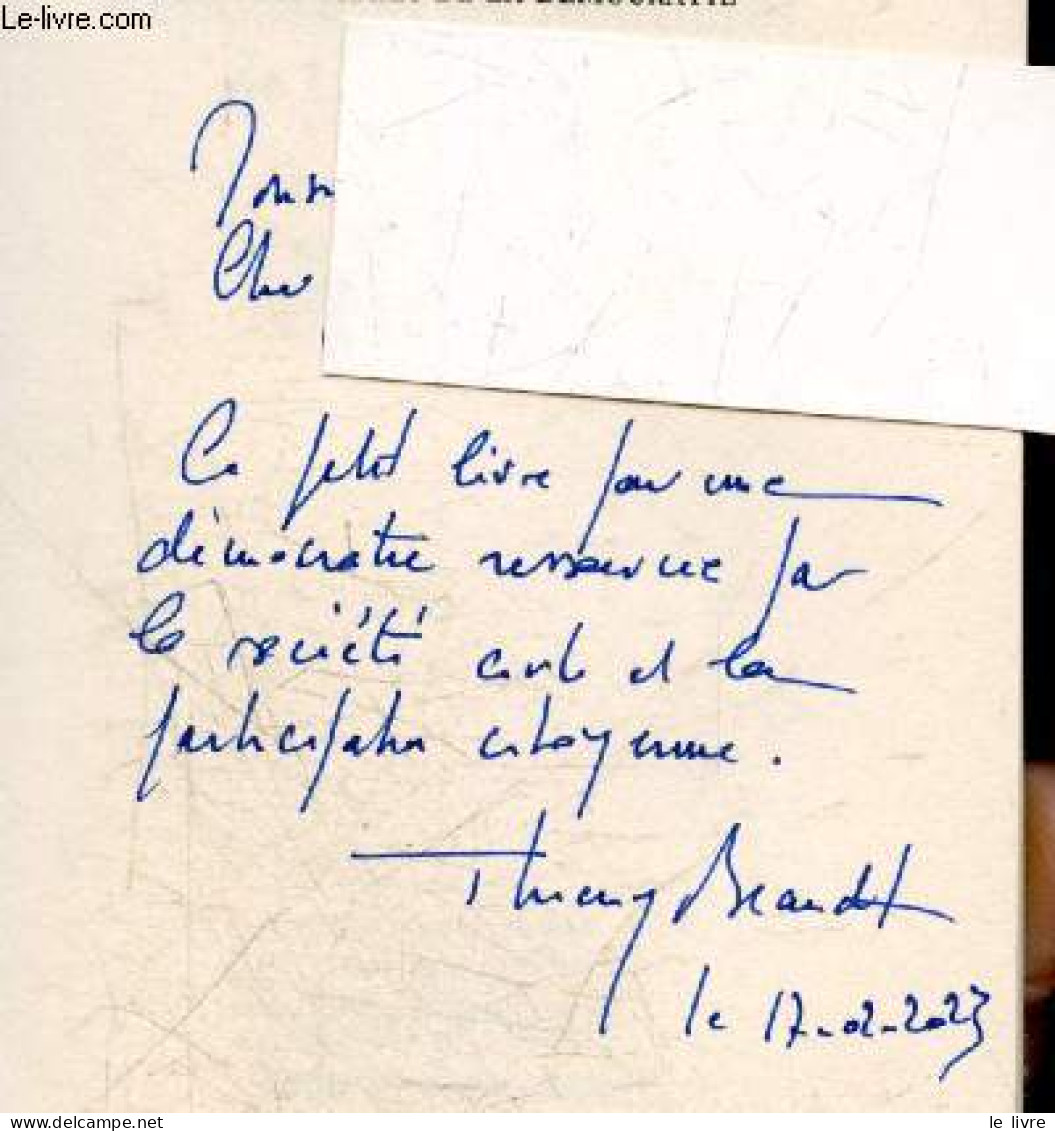 Le-livre.com
DE LA DEMOCRATIE
Ce petit livre pour une
démocratie ressourcée par
la société civile et la
participation citoyenne.
Thierry Beaudet
le 17-02-2023
www.delcampe.net
le livre